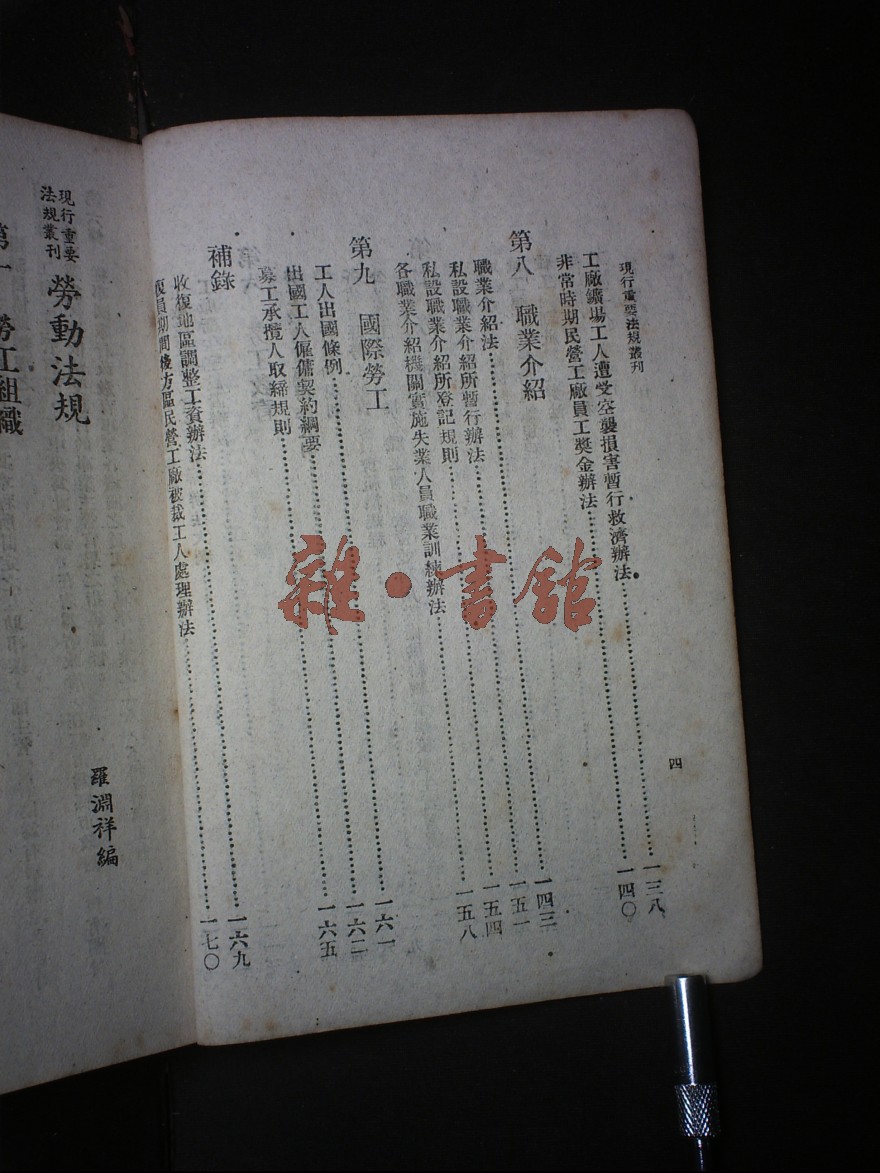 現行重要法規叢刊
四
工廠鑛場工人遭受空襲損害暫行救濟辦法……一三八
非常時期民營工廠員工獎金辦法……一四〇
第八 職業介紹
職業介紹法……一四三
私設職業介紹所暫行辦法……一五一
私設職業介紹所登記規則……一五四
各職業介紹機關實施失業人員職業訓練辦法……一五八
第九 國際勞工
工人出國條例……一六一
出國工人僱傭契約綱要……一六二
募工承攬人取締規則……一六五
補錄
收復地區調整工資辦法……一六九
復員期間後方區民營工廠被裁工人處理辦法……一七〇
現行重要
法規叢刊
勞動法規
羅淵祥編
第一 勞工組織
雜·書館